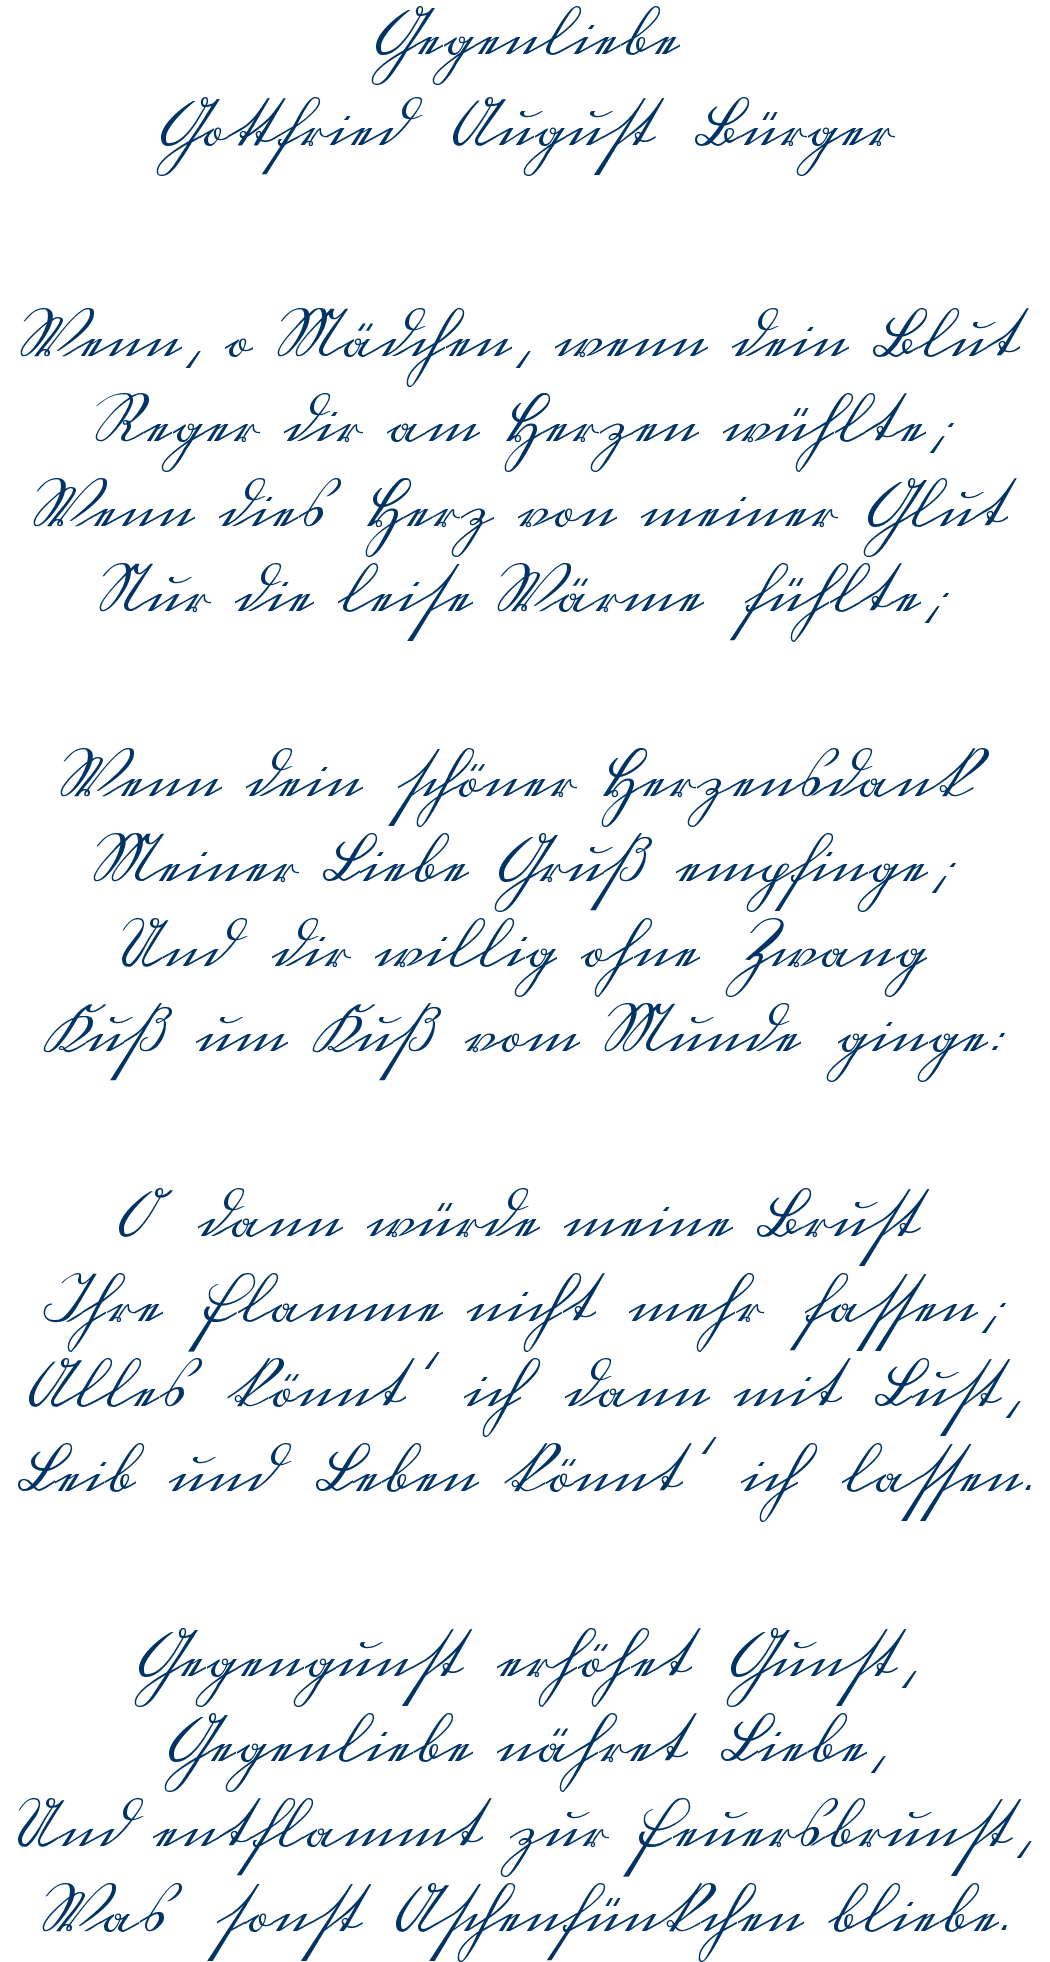 Gegenliebe
Gottfried August Bürger
Wenn, o Mädchen, wenn dein Blut
Reger dir am Herzen wühlte;
Wenn dies Herz von meiner Glut
Nur die leise Wärme fühlte;
Wenn dein schöner Herzensdank
Meiner Liebe Gruß empfinge;
Und dir willig ohne Zwang
Kuß um Kuß vom Munde ginge:
O dann würde meine Brust
Ihre Flamme nicht mehr fassen;
Alles könnt' ich dann mit Lust,
Leib und Leben könnt' ich lassen.
Gegengunst erhöhet Gunst,
Gegenliebe nähret Liebe,
Und entflammt zur Feuersbrunst,
Was sonst Aschenfünkchen bliebe.